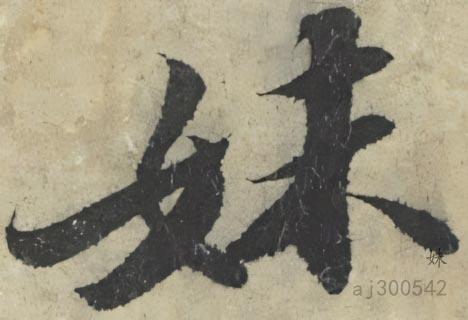 妹
妹
aj300542